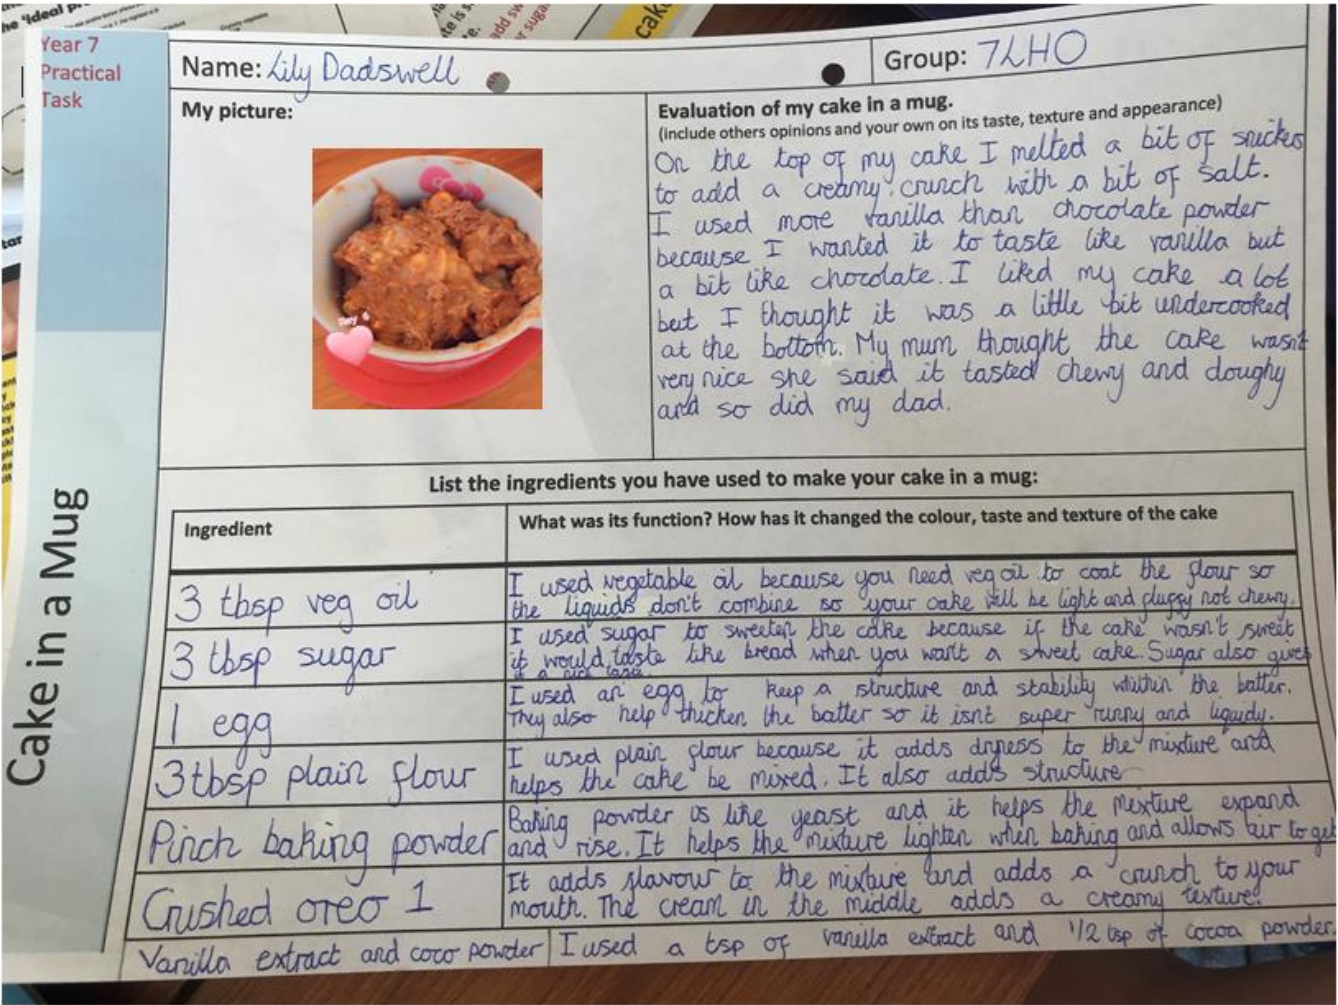 he 'Ideal pr
te is s
te.
add sw
r suga
cak
Year 7
Practical
Task
Name: Lily Dadswell
Group: 7LHO
My picture:
Evaluation of my cake in a mug.
(include others opinions and your own on its taste, texture and appearance)
On the top of my cake I melted a bit of snickers
to add a creamy crunch with a bit of salt.
I used more vanilla than chocolate powder
because I wanted it to taste like vanilla but
a bit like chocolate. I liked my cake a lot
but I thought it was a little bit undercooked
at the bottom. My mum thought the cake wasn't
very nice she said it tasted chewy and doughy
and so did my dad.
Cake in a Mug
List the ingredients you have used to make your cake in a mug:
Ingredient
What was its function? How has it changed the colour, taste and texture of the cake
3 tbsp veg oil
I used vegetable oil because you need veg oil to coat the flour so
the liquids don't combine so your cake will be light and fluffy not chewy.
3 tbsp sugar
I used sugar to sweeten the cake because if the cake wasn't sweet
it would taste like bread when you want a sweet cake. Sugar also gives
it a nice
1 egg
I used an egg to keep a structure and stability whithin the batter.
They also help thicken the batter so it isnt super runny and liquidy.
3tbsp plain flour
I used plain flour because it adds dryness to the mixture and
helps the cake be mixed. It also adds structure
Pinch baking powder
Baking powder is like yeast and it helps the mixture expand
and rise. It helps the mixture lighten when baking and allows air to get
Crushed oreo 1
It adds flavour to the mixture and adds a crunch to your
mouth. The cream in the middle adds a creamy texture.
Vanilla extract and coco powder
I used a tsp of vanilla extract and 1/2 tsp of cocoa powder.